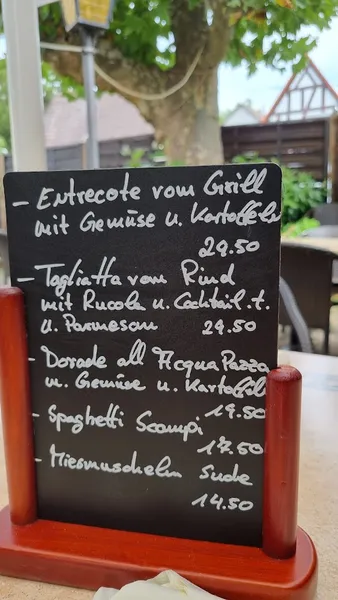 - Entrecote vom Grill
mit Gemüse u. Kartoffeln
29.50
- Tagliatta vom Rind
mit Rucola u. Cocktail.t.
u. Parmesan 29.50
- Dorade all Acqua Pazza
u. Gemüse u. Kartoffeln
19.50
- Spaghetti Scampi
17.50
- Miesmuscheln Sude
14.50